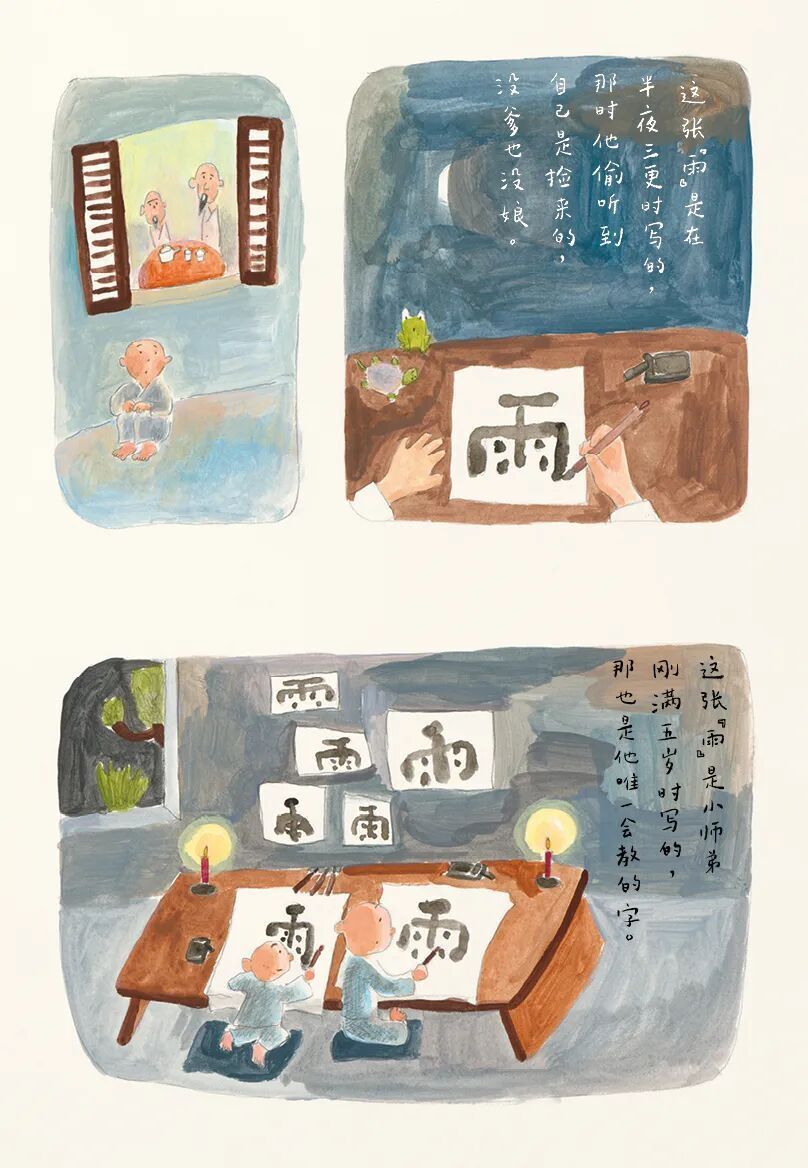 这张『雨』是在
半夜三更时写的，
那时他偷听到
自己是捡来的，
没爹也没娘。
雨
这张『雨』是小师弟
刚满五岁时写的，
那也是他唯一会教的字。
雨
雨
雨
雨
雨
雨
雨